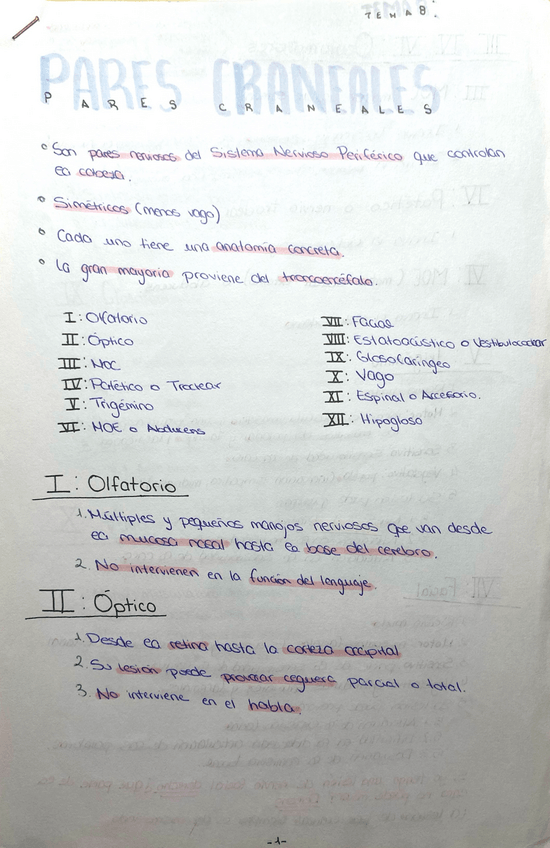 TEMA 8:
PARES CRANEALES
PARES CRANEALES
° Son pares nerviosos del Sistema Nervioso Periférico que controlan
la cabeza.
° Simétricos (menos vago)
° Cada uno tiene una anatomía concreta.
° La gran mayoría proviene del troncoencéfalo.
I: Olfatorio
II: Óptico
III: MOC
IV: Patético o Troclear
V: Trigémino
VI: MOE o Abducens
VII: Facial
VIII: Estatoacústico o Vestibulococlear
IX: Glosofaríngeo
X: Vago
XI: Espinal o Accesorio.
XII: Hipogloso
I: Olfatorio
1. Múltiples y pequeños manojos nerviosos que van desde
la mucosa nasal hasta la base del cerebro.
2. No intervienen en la función del lenguaje.
II: Óptico
1. Desde la retina hasta la corteza occipital
2. Su lesión puede provocar ceguera parcial o total.
3. No interviene en el habla.
-1-